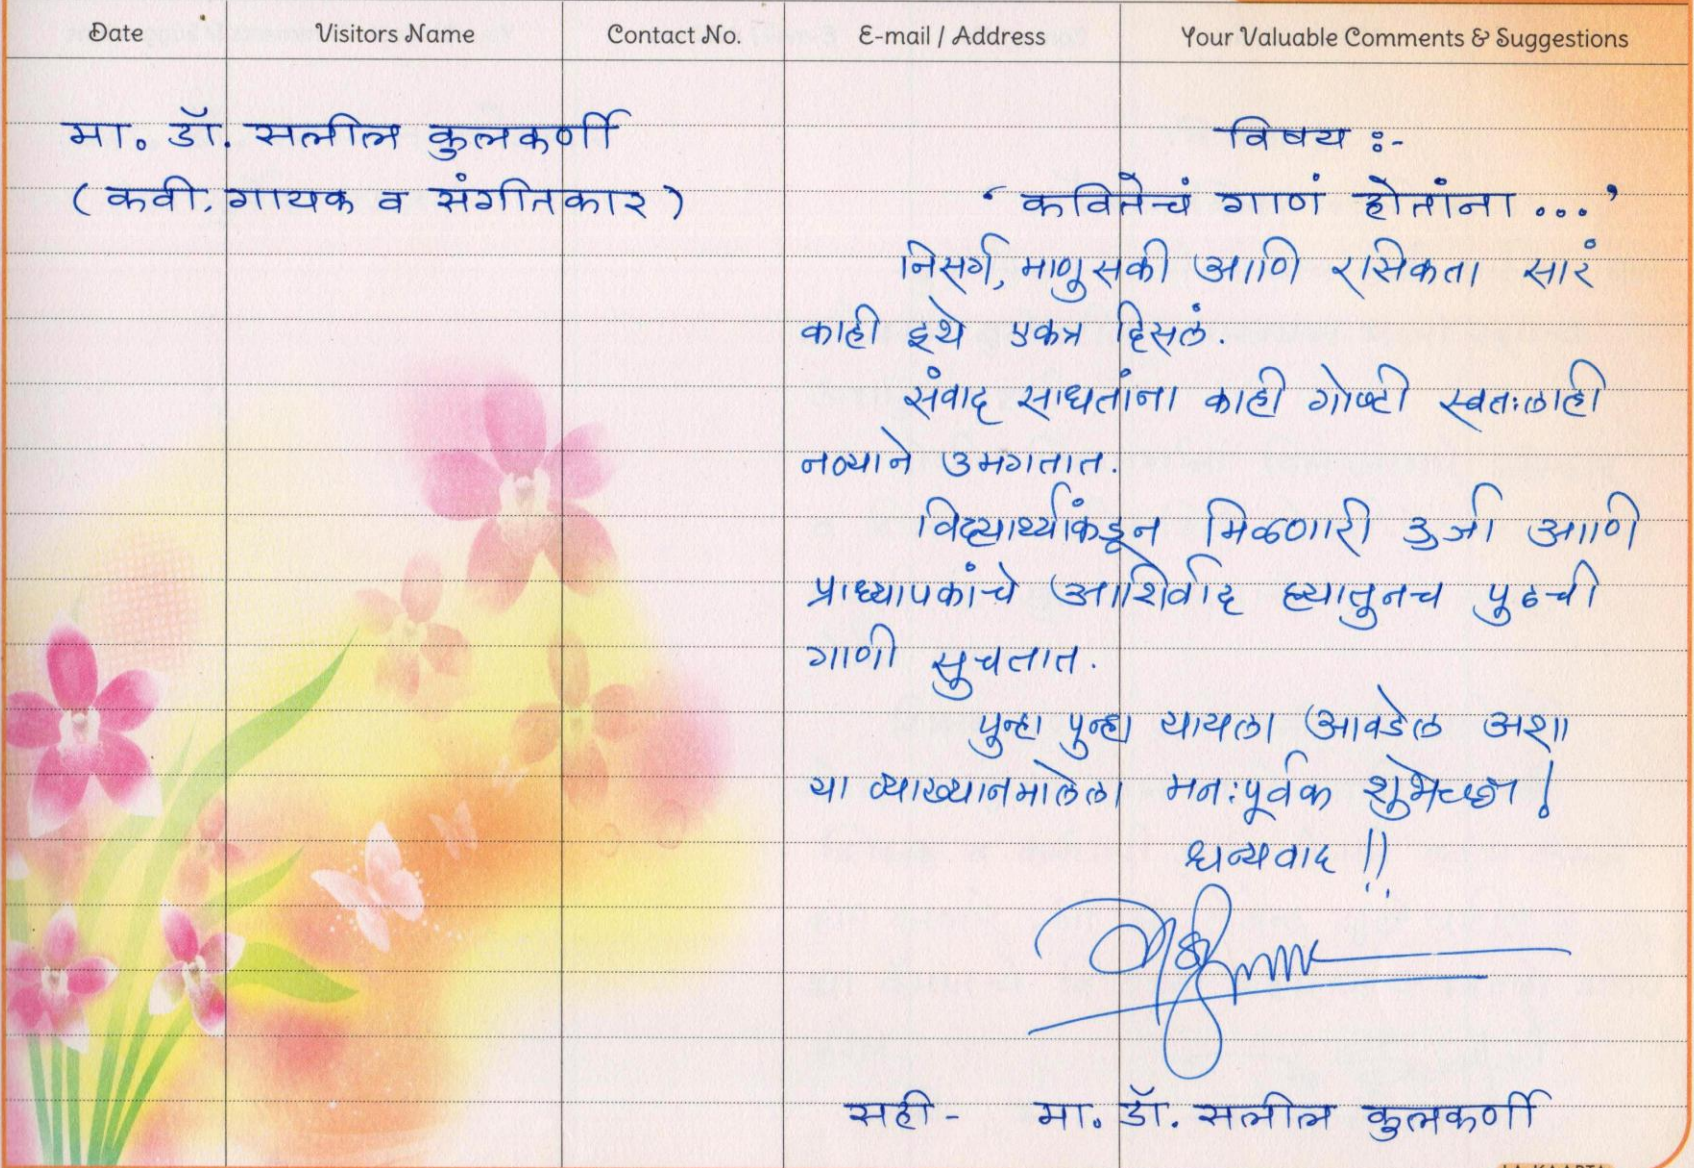 Date Visitors Name Contact No. E-mail / Address Your Valuable Comments & Suggestions
मा. डॉ. सलील कुलकर्णी
(कवी, गायक व संगीतकार)
विषय :-
‘कवितेचं गाणं होतांना ...’
निसर्ग, माणुसकी आणि रसिकता सारं
काही इथे एकत्र दिसलं.
संवाद साधतांना काही गोष्टी स्वतःलाही
नव्याने उमगतात.
विद्यार्थ्यांकडून मिळणारी उर्जा आणि
प्राध्यापकांचे आशिर्वाद ह्यातुनच पुढची
गाणी सुचतात.
पुन्हा पुन्हा यायला आवडेल अशा
या व्याख्यानमालेला मनःपूर्वक शुभेच्छा !
धन्यवाद !!
सही - मा. डॉ. सलील कुलकर्णी